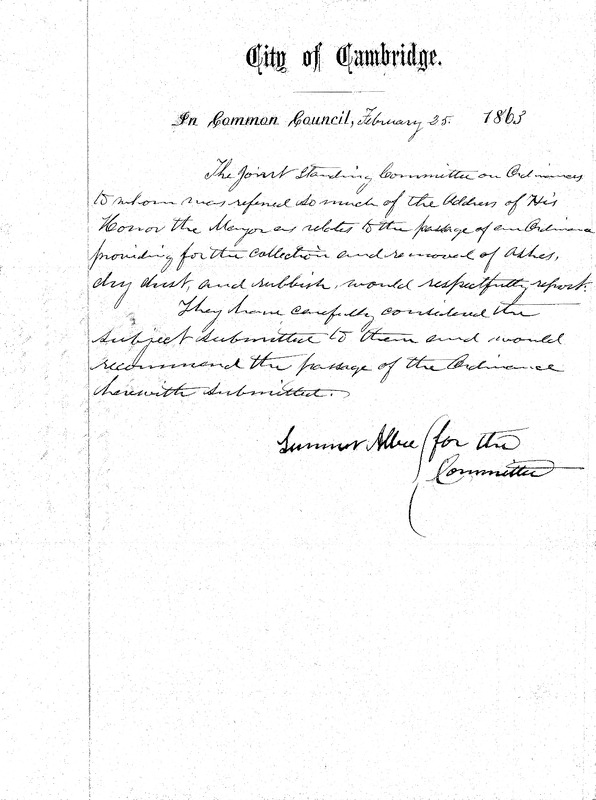 City of Cambridge.
In Common Council, February 25. 1863
The Joint Standing Committee on Ordinances
to whom was referred so much of the Address of His
Honor the Mayor as relates to the passage of an Ordinance
providing for the collection and removal of ashes,
dry dust, and rubbish, would respectfully report.
They have carefully considered the
subject submitted to them and would
recommend the passage of the Ordinance
herewith submitted.
Sumner Albee for the
Committee